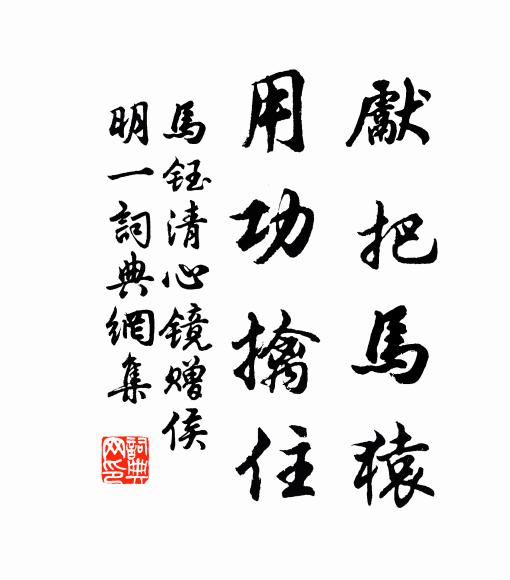 獻把馬猿
用功擒住
馬鈺清心鏡贈侯
明一詞典網集
詞典網印